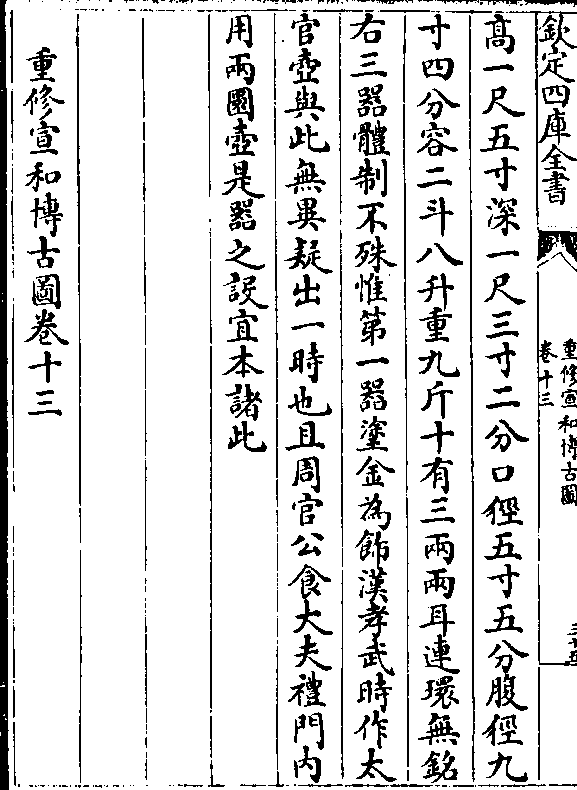 欽定四庫全書
重修宣和博古圖
卷十三
高一尺五寸深一尺三寸二分口徑五寸五分腹徑九
寸四分容二斗八升重九斤十有三兩兩耳連環無銘
右三器體制不殊惟第一器塗金為飾漢孝武時作太
官壺與此無異疑出一時也且周官公食大夫禮門內
用兩圜壺是器之設宜本諸此
重修宣和博古圖卷十三